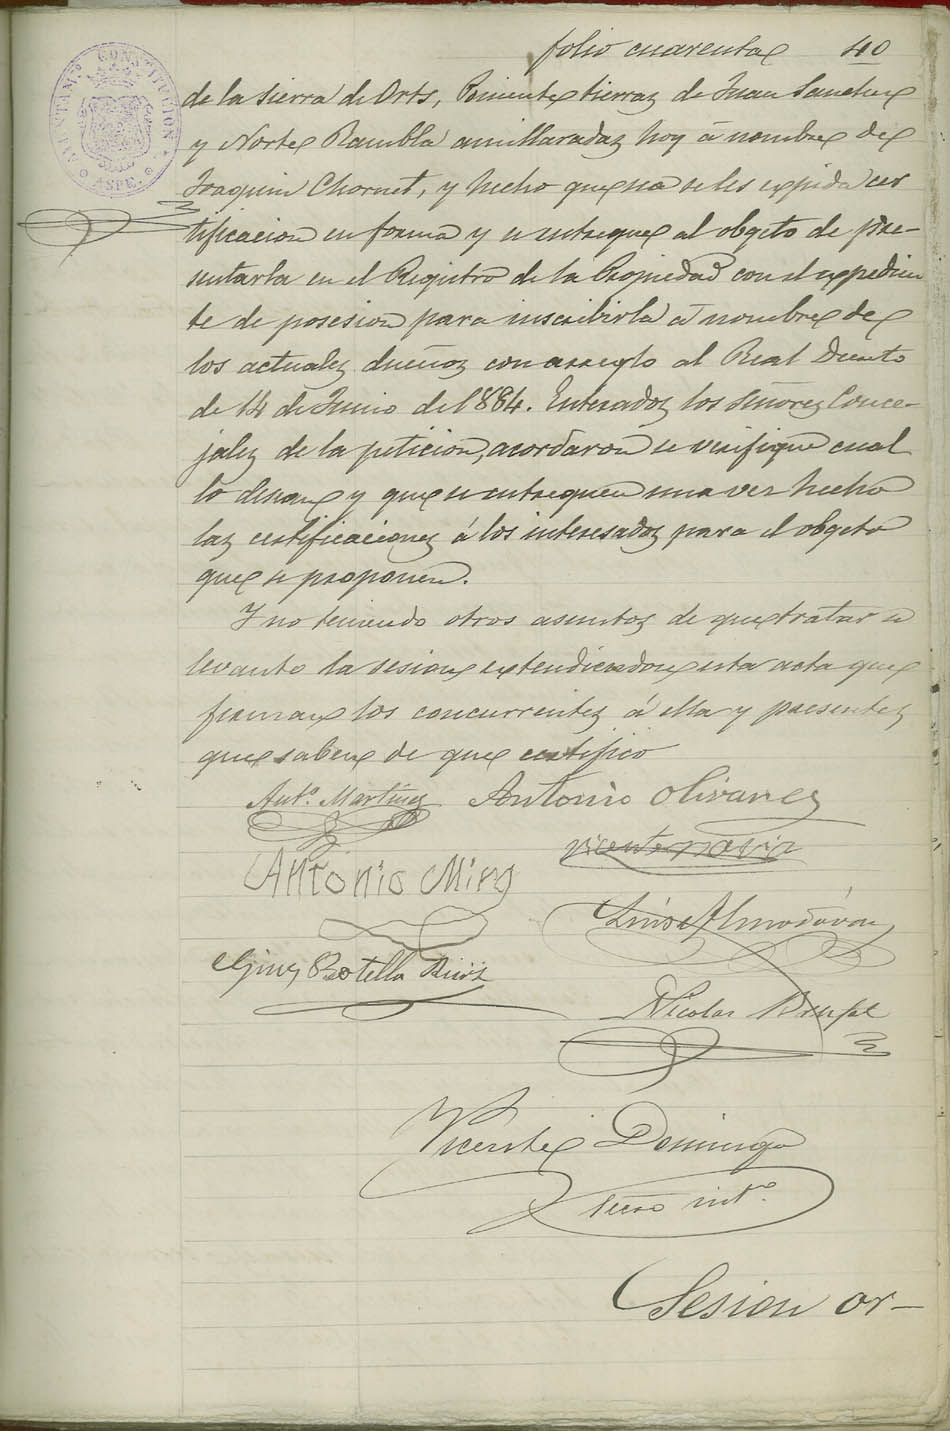 folio cuarenta 40
AYUNTAM.º CONSTITUCIONAL
ASPE.
de la sierra de Orts, Poniente tierras de Juan Sanchez
y Norte Rambla amillaradas hoy á nombre de
Joaquin Chornet, y hecho que sea se les expida cer
tificacion en forma y se entregue al obgeto de pre-
sentarla en el Registro de la Propiedad con el expedien
te de posesion para inscribirla á nombre de
los actuales dueños con arreglo al Real Decreto
de 14 de Junio de 1884. Enterados los Señores Conce-
jales de la peticion, acordaron se verifique cual
lo desean y que se entreguen una vez hecho
las certificaciones á los interesados para el obgeto
que se proponen.
Y no teniendo otros asuntos de que tratar se
levantó la sesion extendiendose esta acta que
firman los concurrentes á ella y presentes
que saben de que certifico
Ant.º Martinez Antonio Olivares
Vicente
Antonio Miro
Luis Almodóvar
Gines Botella Ruiz
Nicolas Brufal
Vicente Domingo
Secro int.º
Sesion or-